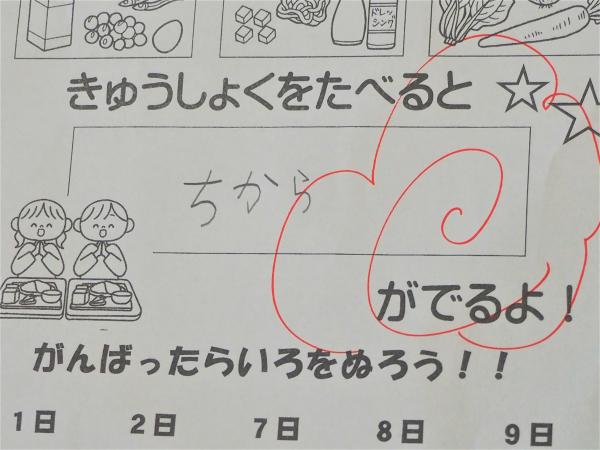 ドレッシング
きゅうしょくをたべると
ちから
がでるよ！
がんばったらいろをぬろう！！
1日 2日 7日 8日 9日